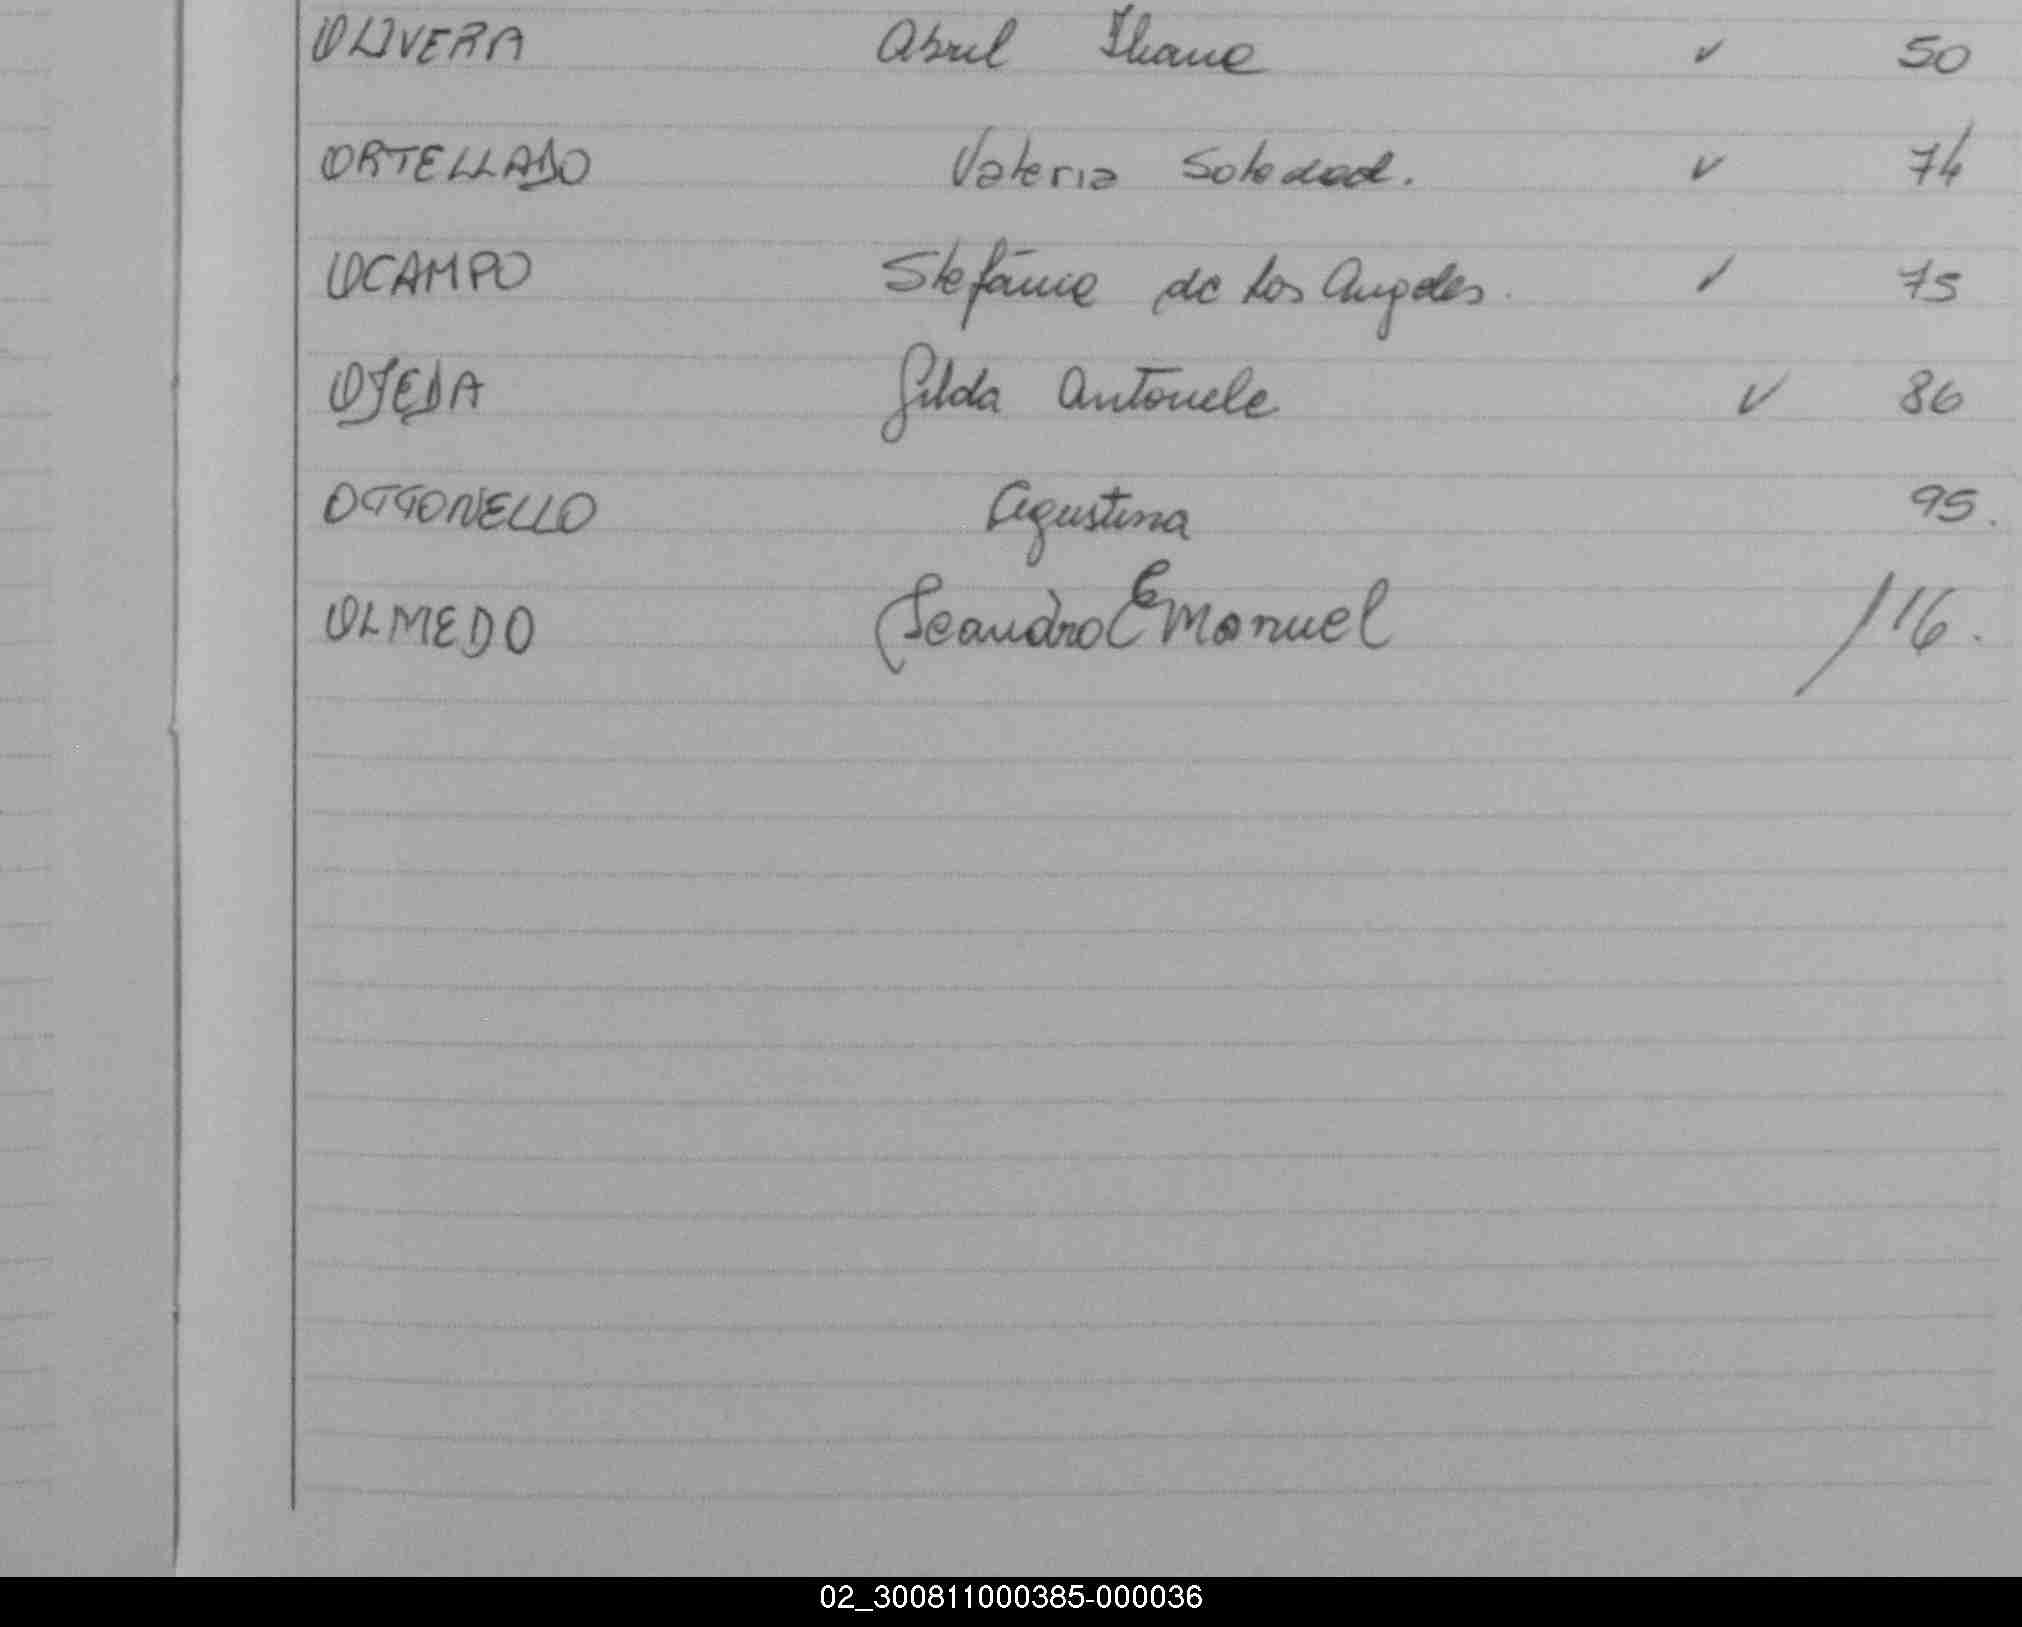 OLIVERA Abril Iliana ✓ 50
ORTELLADO Valeria Soledad. ✓ 74
OCAMPO Stefánia de Los Angeles. ✓ 75
OJEDA Gilda Antonela ✓ 86
OTTONELLO Agustina 95.
OLMEDO Leandro Emanuel 116.
02_300811000385-000036